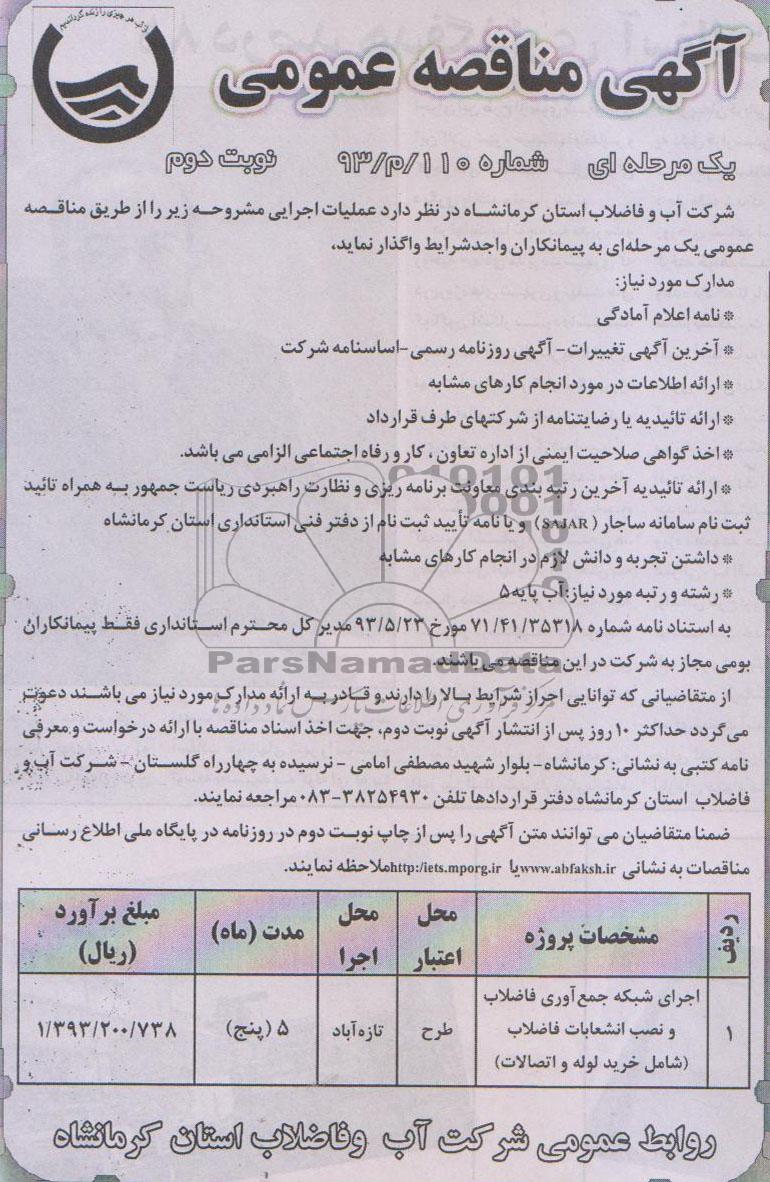 از آب هر چیزی را زنده گردانیدیم
آگهی مناقصه عمومی
یک مرحله ای شماره ۱۱۰/م/۹۳ نوبت دوم
شرکت آب و فاضلاب استان کرمانشاه در نظر دارد عملیات اجرایی مشروحه زیر را از طریق مناقصه
عمومی یک مرحله‌ای به پیمانکاران واجدشرایط واگذار نماید،
مدارک مورد نیاز:
* نامه اعلام آمادگی
* آخرین آگهی تغییرات- آگهی روزنامه رسمی-اساسنامه شرکت
* ارائه اطلاعات در مورد انجام کارهای مشابه
* ارائه تائیدیه یا رضایتنامه از شرکتهای طرف قرارداد
* اخذ گواهی صلاحیت ایمنی از اداره تعاون ، کار و رفاه اجتماعی الزامی می باشد.
* ارائه تائیدیه آخرین رتبه بندی معاونت برنامه ریزی و نظارت راهبردی ریاست جمهور به همراه تائید
ثبت نام سامانه ساجار ( SAJAR) و یا نامه تأیید ثبت نام از دفتر فنی استانداری استان کرمانشاه
* داشتن تجربه و دانش لازم در انجام کارهای مشابه
* رشته و رتبه مورد نیاز:آب پایه۵
به استناد نامه شماره ۷۱/۴۱/۳۵۳۱۸ مورخ ۹۳/۵/۲۳ مدیر کل محترم استانداری فقط پیمانکاران
بومی مجاز به شرکت در این مناقصه می باشند.
ParsNamadData
مرکز فرآوری اطلاعات پارس نماد داده ها
از متقاضیانی که توانایی احراز شرایط بالا را دارند و قادر به ارائه مدارک مورد نیاز می باشند دعوت
می‌گردد حداکثر ۱۰ روز پس از انتشار آگهی نوبت دوم، جهت اخذ اسناد مناقصه با ارائه درخواست و معرفی
نامه کتبی به نشانی: کرمانشاه- بلوار شهید مصطفی امامی - نرسیده به چهارراه گلستان - شرکت آب و
فاضلاب استان کرمانشاه دفتر قراردادها تلفن ۳۸۲۵۴۹۳۰-۰۸۳ مراجعه نمایند.
ضمنا متقاضیان می توانند متن آگهی را پس از چاپ نوبت دوم در روزنامه در پایگاه ملی اطلاع رسانی
مناقصات به نشانی www.abfaksh.ir یا http:/iets.mporg.ir ملاحظه نمایند.
ردیف مشخصات پروژه محل اعتبار محل اجرا مدت (ماه) مبلغ برآورد (ریال)
۱ اجرای شبکه جمع‌آوری فاضلاب و نصب انشعابات فاضلاب (شامل خرید لوله و اتصالات) طرح تازه‌آباد ۵ (پنج) ۱/۳۹۳/۲۰۰/۷۳۸
روابط عمومی شرکت آب وفاضلاب استان کرمانشاه